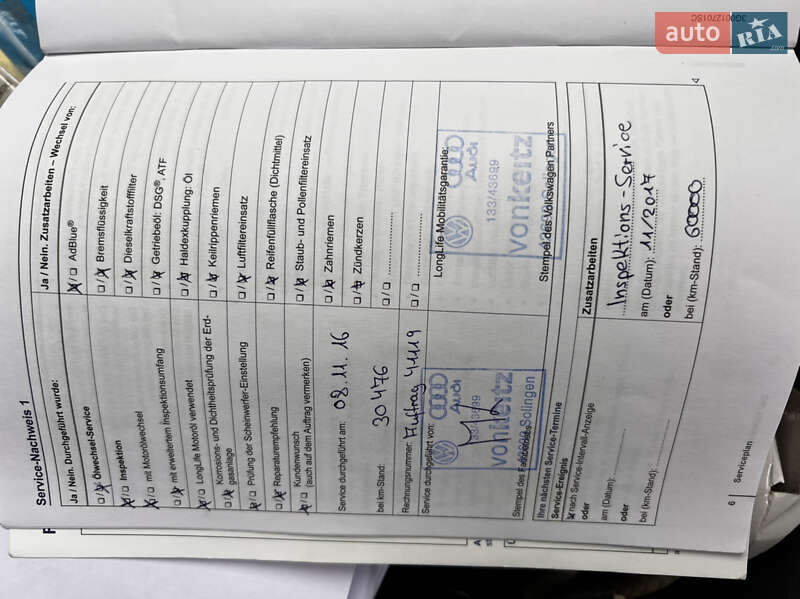 auto RIA .com
3G0012701SC
Service-Nachweis 1
Ja / Nein. Durchgeführt wurde:
Ölwechsel-Service
Inspektion
mit Motorölwechsel
mit erweitertem Inspektionsumfang
LongLife Motoröl verwendet
Korrosions- und Dichtheitsprüfung der Erd-
gasanlage
Prüfung der Scheinwerfer-Einstellung
Reparaturempfehlung
Kundenwunsch
(auch auf dem Auftrag vermerken)
Service durchgeführt am: 08.11.16
bei km-Stand: 30476
Rechnungsnummer: Auftrag 41119
Service durchgeführt von:
Audi
133/43699
vonkeitz
Solingen
Stempel des
Ja / Nein. Zusatzarbeiten – Wechsel von:
AdBlue®
Bremsflüssigkeit
Dieselkraftstofffilter
Getriebeöl: DSG®, ATF
Haldexkupplung: Öl
Keilrippenriemen
Luftfiltereinsatz
Reifenfüllflasche (Dichtmittel)
Staub- und Pollenfiltereinsatz
Zahnriemen
Zündkerzen
LongLife Mobilitätsgarantie:
Audi
133/43699
vonkeitz
Solingen
Stempel des Volkswagen Partners
Ihre nächsten Service-Termine
Service-Ereignis
nach Service-Intervall-Anzeige
oder
am (Datum):
oder
bei (km-Stand):
Zusatzarbeiten
Inspektions-Service
am (Datum): 11/2017
oder
bei (km-Stand): 60000
6 Serviceplan